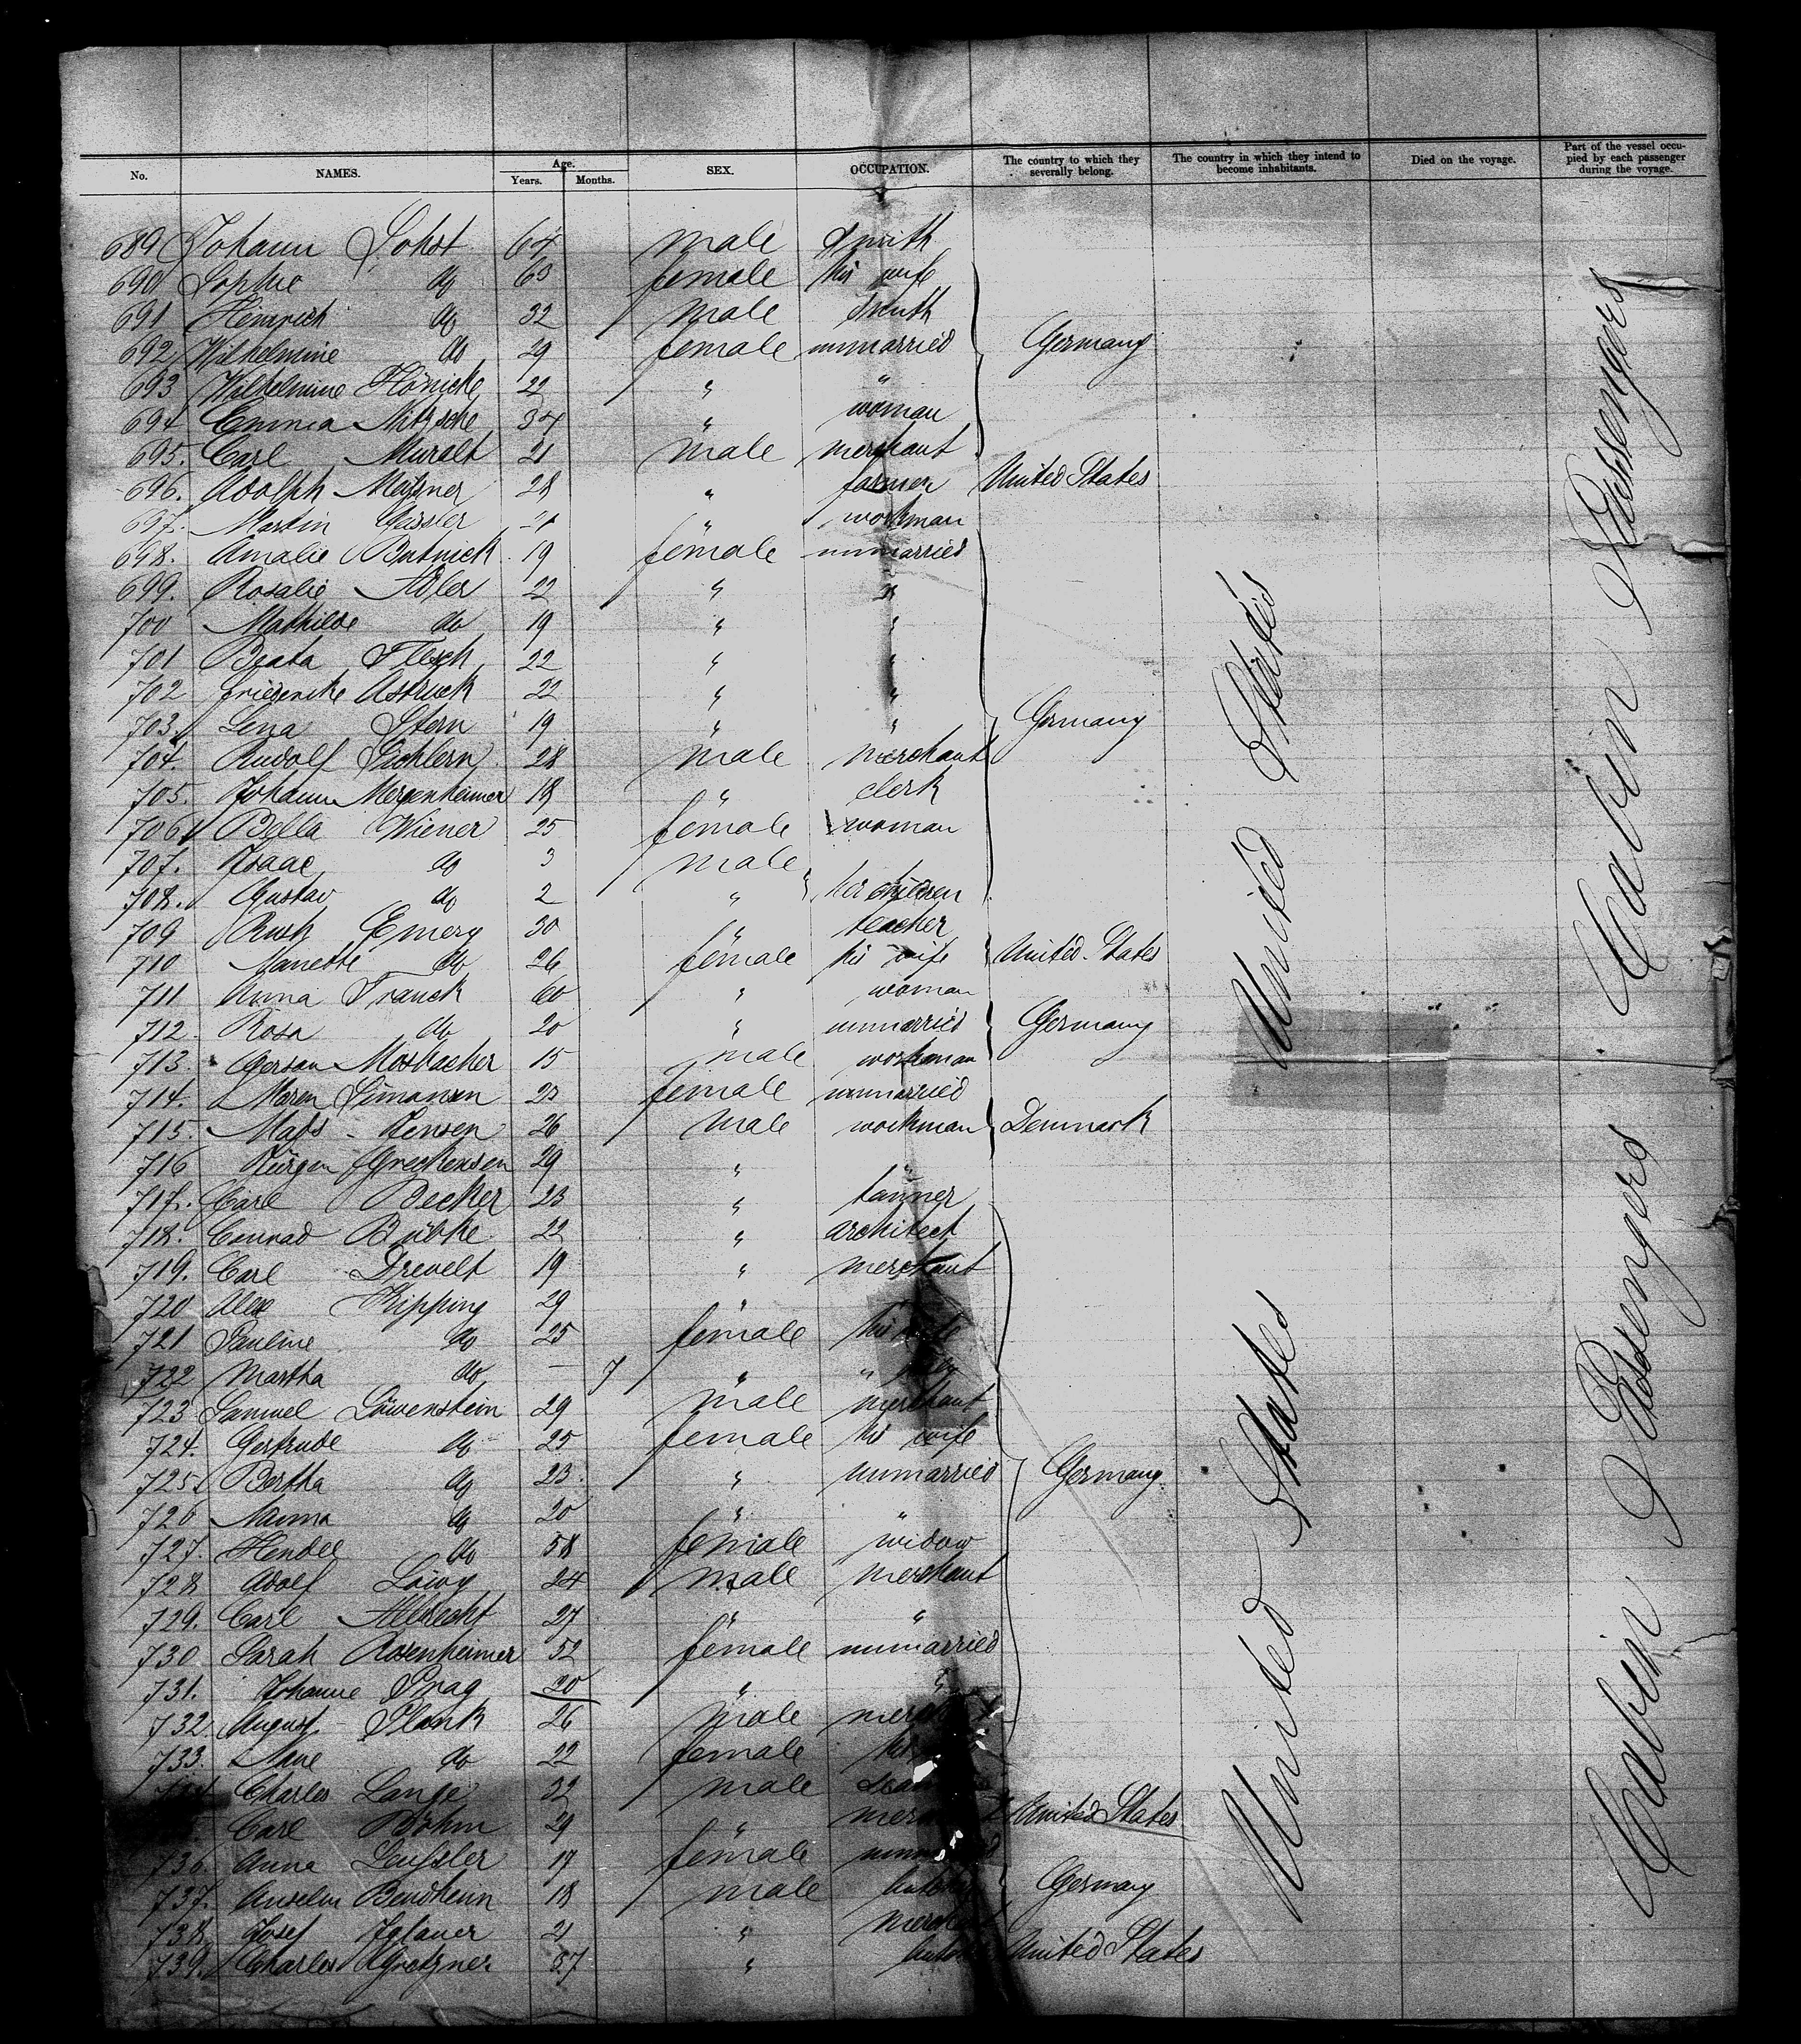 No. NAMES. Age. Years. Months. SEX. OCCUPATION. The country to which they severally belong. The country in which they intend to become inhabitants. Died on the voyage. Part of the vessel occupied by each passenger during the voyage.
689 Johann Johst 64 male smith
690 Sophie do 63 female his wife
691 Heinrich do 32 male smith
692 Wilhelmine do 29 female unmarried Germany
693 Wilhelmine Hönicke 22 " "
694 Emma Nitzsche 34 " woman
695. Carl Muralt 21 male merchant
696. Adolph Meißner 28 " farmer United States
697. Martin Gessler 21 " workman
698. Amalie Butnick 19 female unmarried
699. Rosalie Adler 22 " "
700 Mathilde do 19 " "
701 Beata Flesch 22 " "
702 Friederike Astruck 22 " "
703. Lena Stern 19 " " Germany
704. Rudolf Sichlern 28 male merchant
705. Johann Mergenheimer 18 " clerk
706 Bella Wiener 25 female woman
707. Isaac do 3 male
708. Gustav do 2 " her children
709 Rush Emery 30 " teacher
710 Nanette do 26 female his wife United States
711 Anna Franck 60 " woman
712. Rosa do 20 " unmarried Germany
713. Gerson Mosbacher 15 male workman
714. Maren Simonsen 23 female unmarried
715. Mads Jensen 26 male workman Denmark
716 Jürgen 29 " "
717. Carl Becker 23 " tanner
718. Conrad Bübke 22 " architect
719. Carl Drevelt 19 " merchant
720 Alex Kipping 29 " "
721 Pauline do 25 female his wife
722 Martha do – 7 " "
723 Samuel Löwenstein 29 male merchant
724. Gertrude do 25 female his wife
725 Bertha do 23. " unmarried Germany
726 Naima do 20 " "
727. Hendel do 58 female widow
728 Adolf Löwy 24 male merchant
729. Carl Albrecht 27 " "
730. Sarah Rosenheimer 52 female unmarried
731. Johanne Prag 20 " "
732 August Plank 26 male merchant
733. Ane do 22 female his
Charles Lange 32 male
Carl Böhm 29 " United States
736. Anna Leußler 17 female
737. Anselm Bendheim 18 male Germany
738. Josef Iglauer 21 " merchant
739. Charles Gretzner 57 " United States
United States
United States
Cabin Passengers
Cabin Passengers